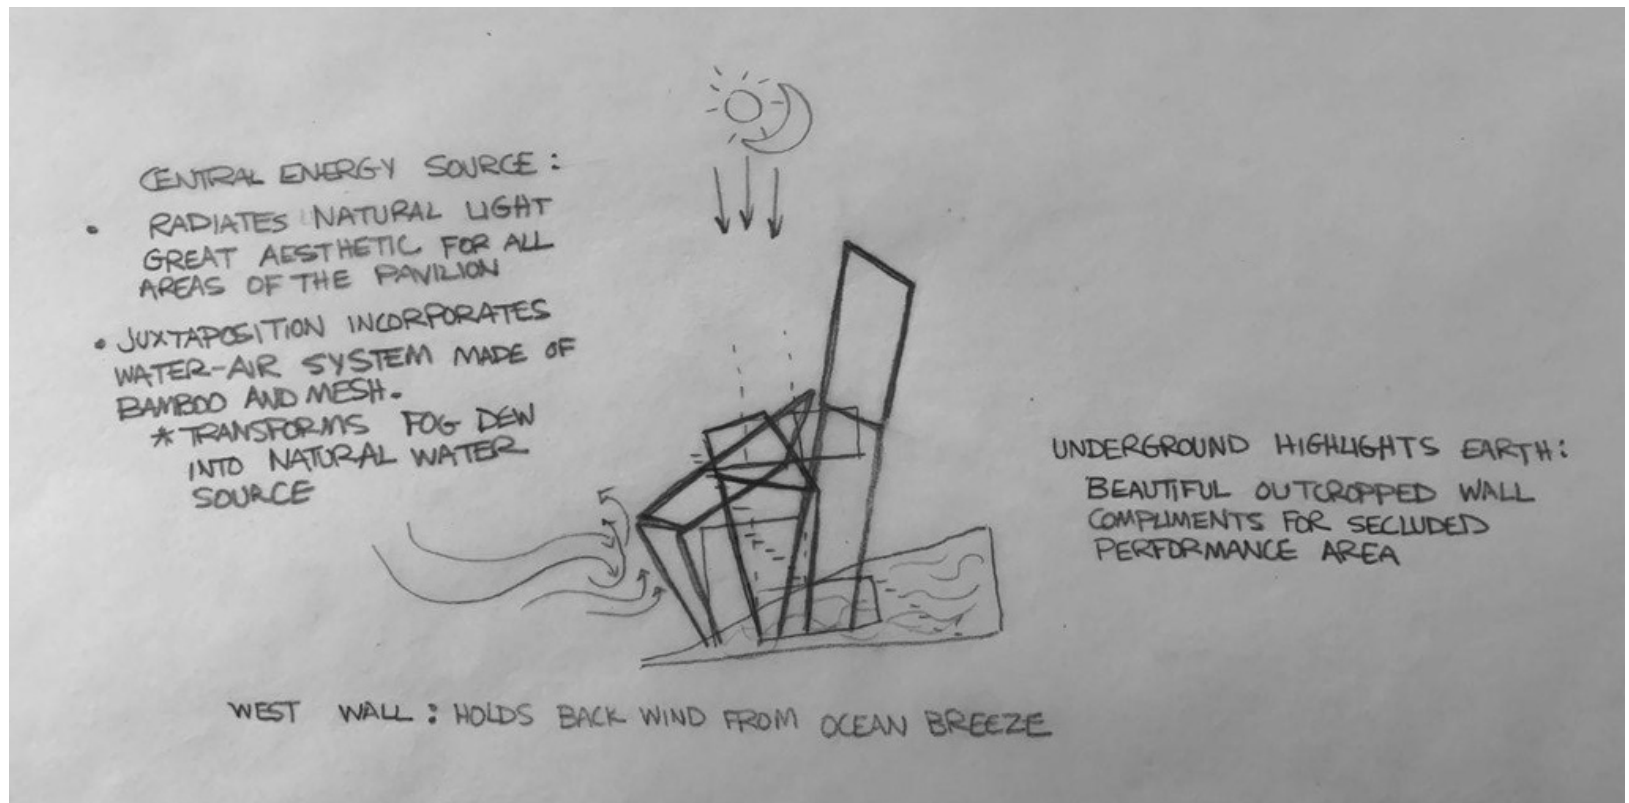 CENTRAL ENERGY SOURCE:
• RADIATES NATURAL LIGHT
GREAT AESTHETIC FOR ALL
AREAS OF THE PAVILION
• JUXTAPOSITION INCORPORATES
WATER-AIR SYSTEM MADE OF
BAMBOO AND MESH.
* TRANSFORMS FOG DEW
INTO NATURAL WATER
SOURCE
UNDERGROUND HIGHLIGHTS EARTH:
BEAUTIFUL OUTCROPPED WALL
COMPLIMENTS FOR SECLUDED
PERFORMANCE AREA
WEST WALL: HOLDS BACK WIND FROM OCEAN BREEZE